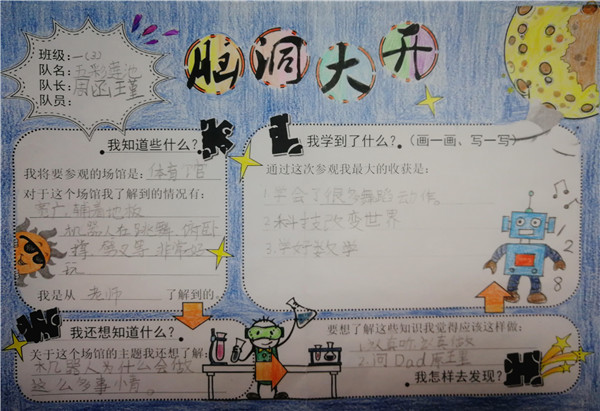 脑洞大开
班级：一(3)
队名：五彩莲池
队长：
队员：
我知道些什么？
我将要参观的场馆是：体育
对于这个场馆我了解到的情况有：
宽广、铺着地板
机器人在跳舞 俯卧
撑 等 非常好
玩
我是从 老师 了解到的。
我学到了什么？（画一画、写一写）
通过这次参观我最大的收获是：
1.学会了很多舞蹈动作
2.科技改变世界
3.学好数学
1
2
8
我还想知道什么？
关于这个场馆的主题我还想了解：
机器人为什么会做
这么多事情
要想了解这些知识我觉得应该这样做：
1.
2.问Dad
我怎样去发现？